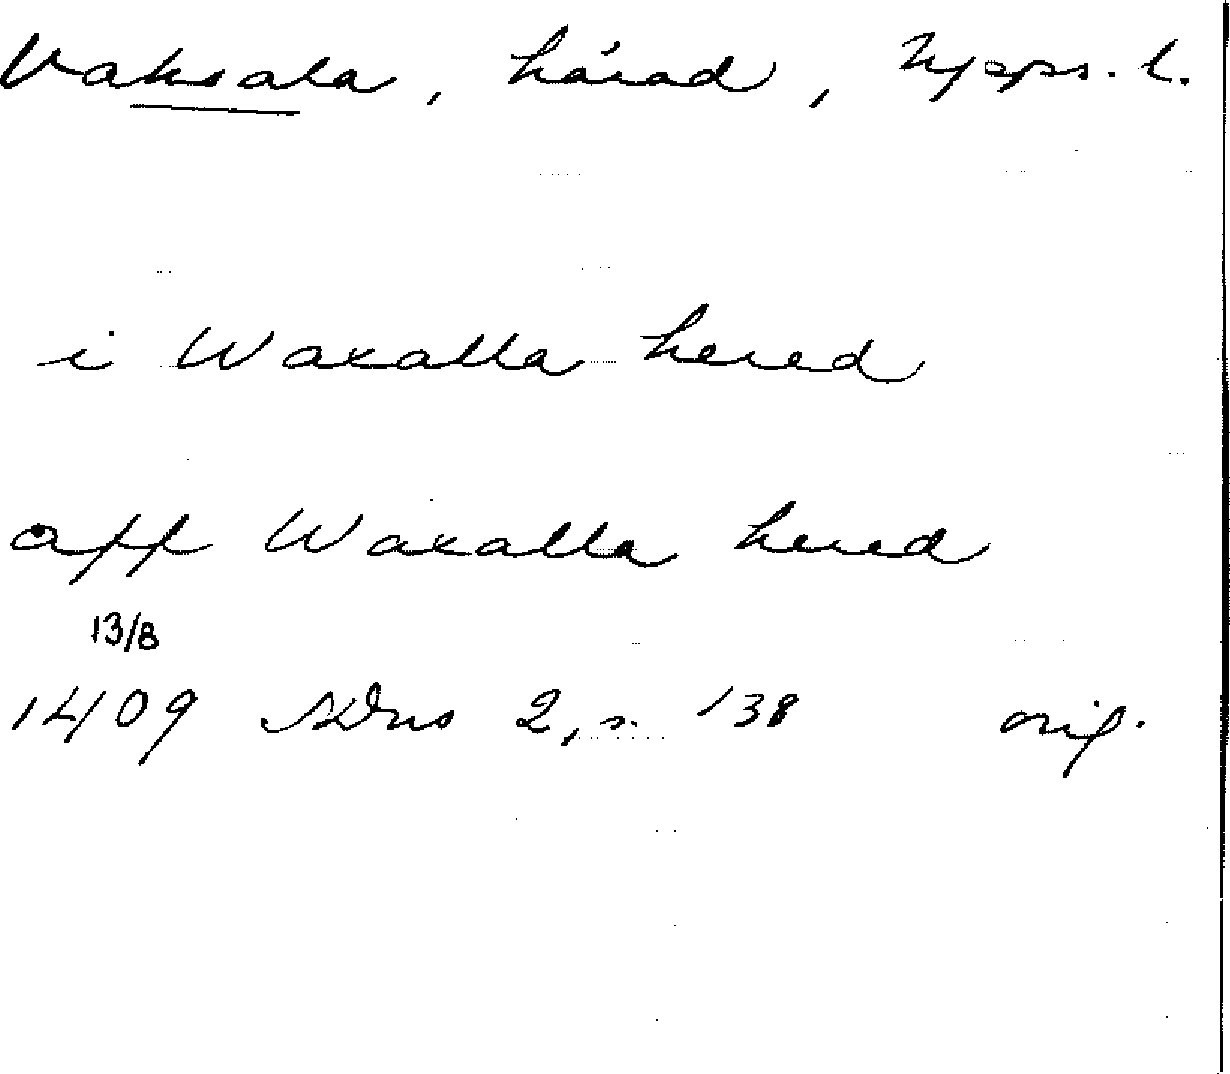 Vaksala, härad, Upps. l.
i Waxalla hered
aff Waxalla hered
13/8
1409 SDns 2, s. 138 orig.